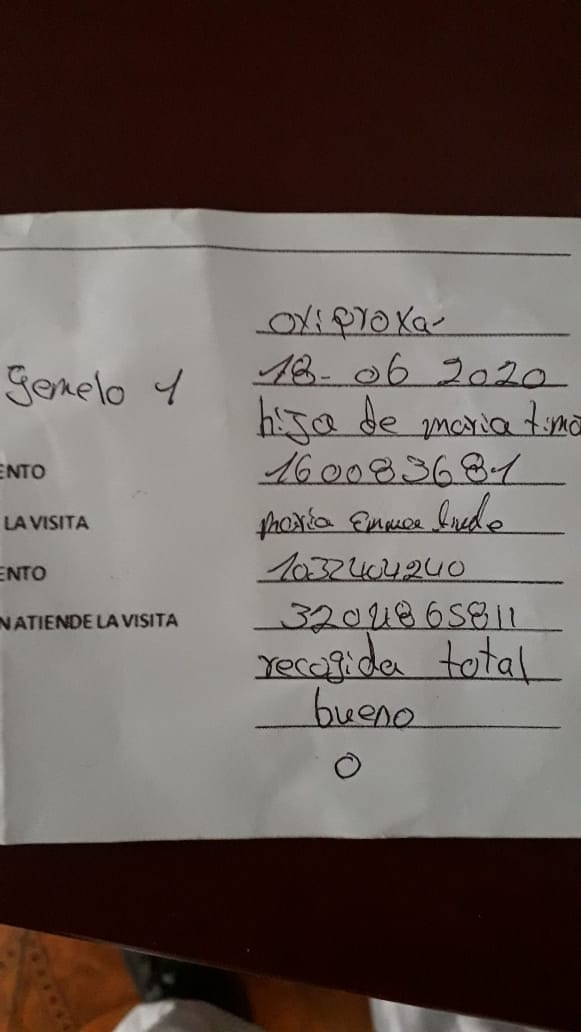 oxiproxa-
Gemelo 1 18-06 2020
hija de maria
ENTO 160083681
LA VISITA maria
ENTO 1032404240
N ATIENDE LA VISITA 3204865811
recogida total
bueno
0